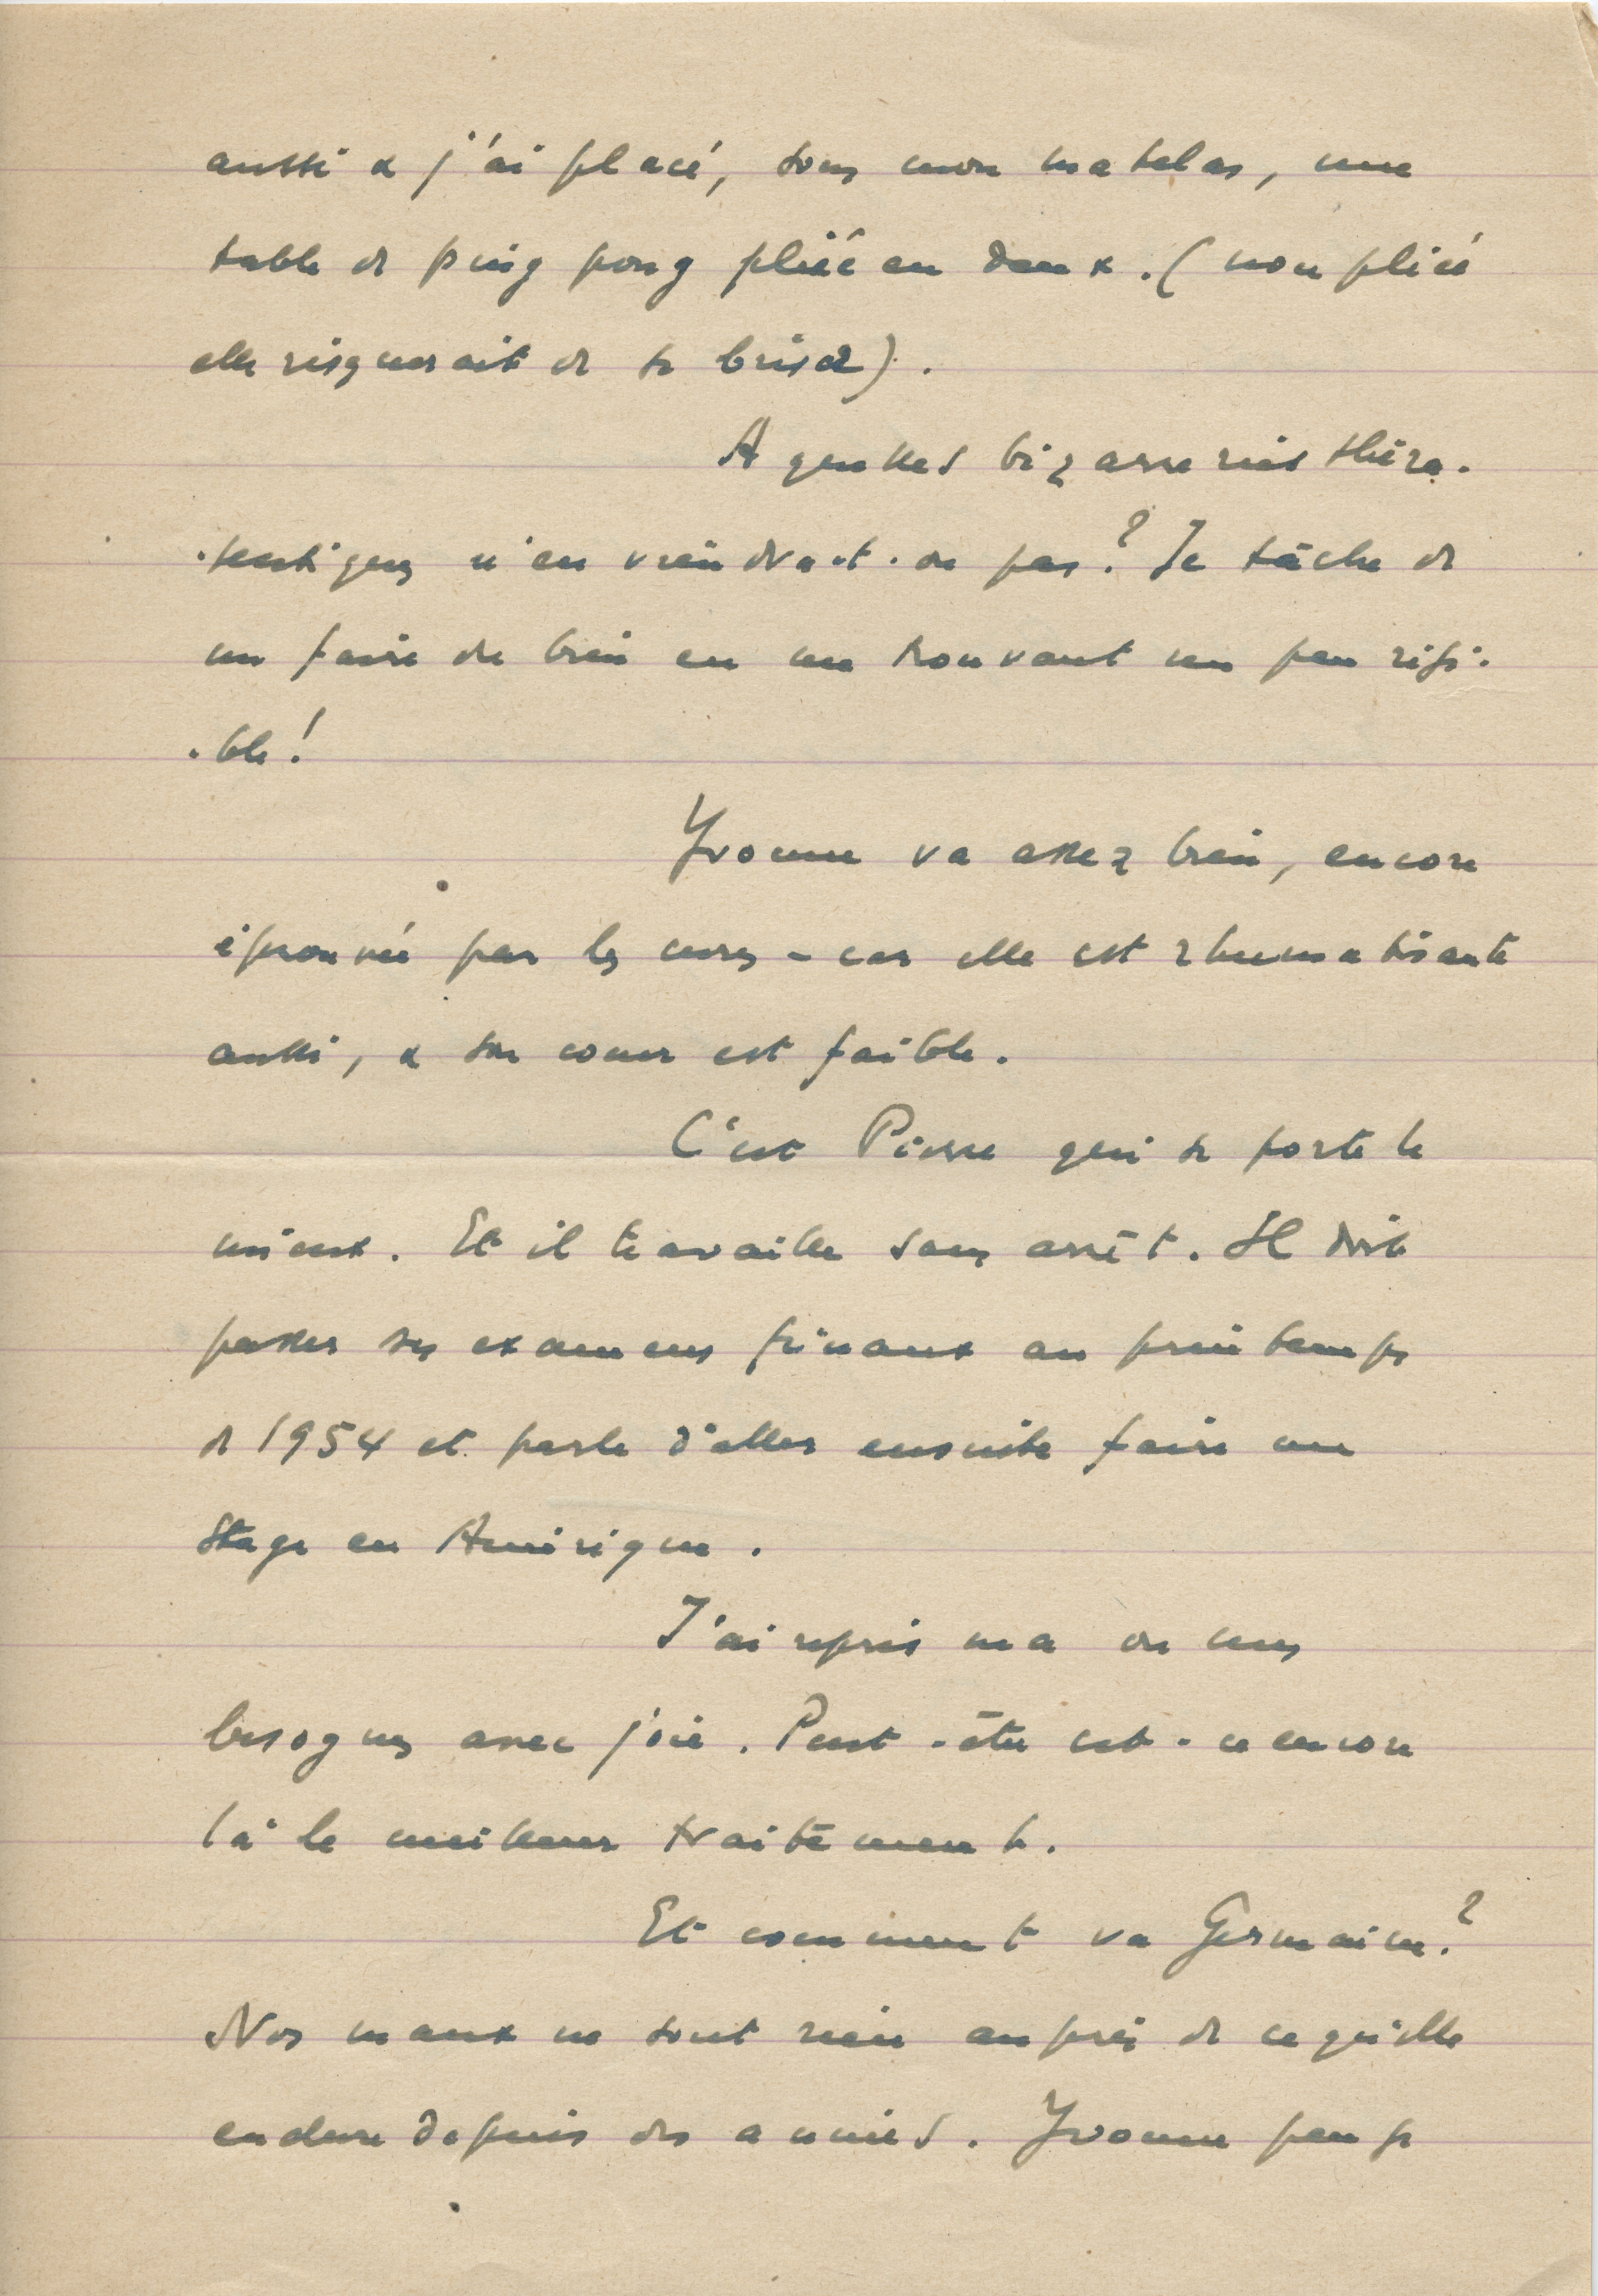 aussi & j'ai placé, sous mon matelas, une
table de ping pong pliée en deux. (non pliée
elle risquerait de se briser).
A quelles bizarreries théra-
-peutiques n'en viendra-t-on pas? Je tâche de
me faire du bien en me trouvant un peu risi-
-ble!
Yvonne va assez bien, encore
éprouvée par les cures - car elle est rhumatisante
aussi, & son coeur est faible.
C'est Pierre qui se porte le
mieux. Et il travaille sans arrêt. Il doit
passer ses examens finaux au printemps
de 1954 et parle d'aller ensuite faire un
stage en Amérique.
J'ai repris ma ou mes
besognes avec joie. Peut-être est-ce encore
là le meilleur traitement.
Et comment va Germaine?
Nos maux ne sont rien auprès de ce qu'elle
endure depuis des années. Yvonne pense